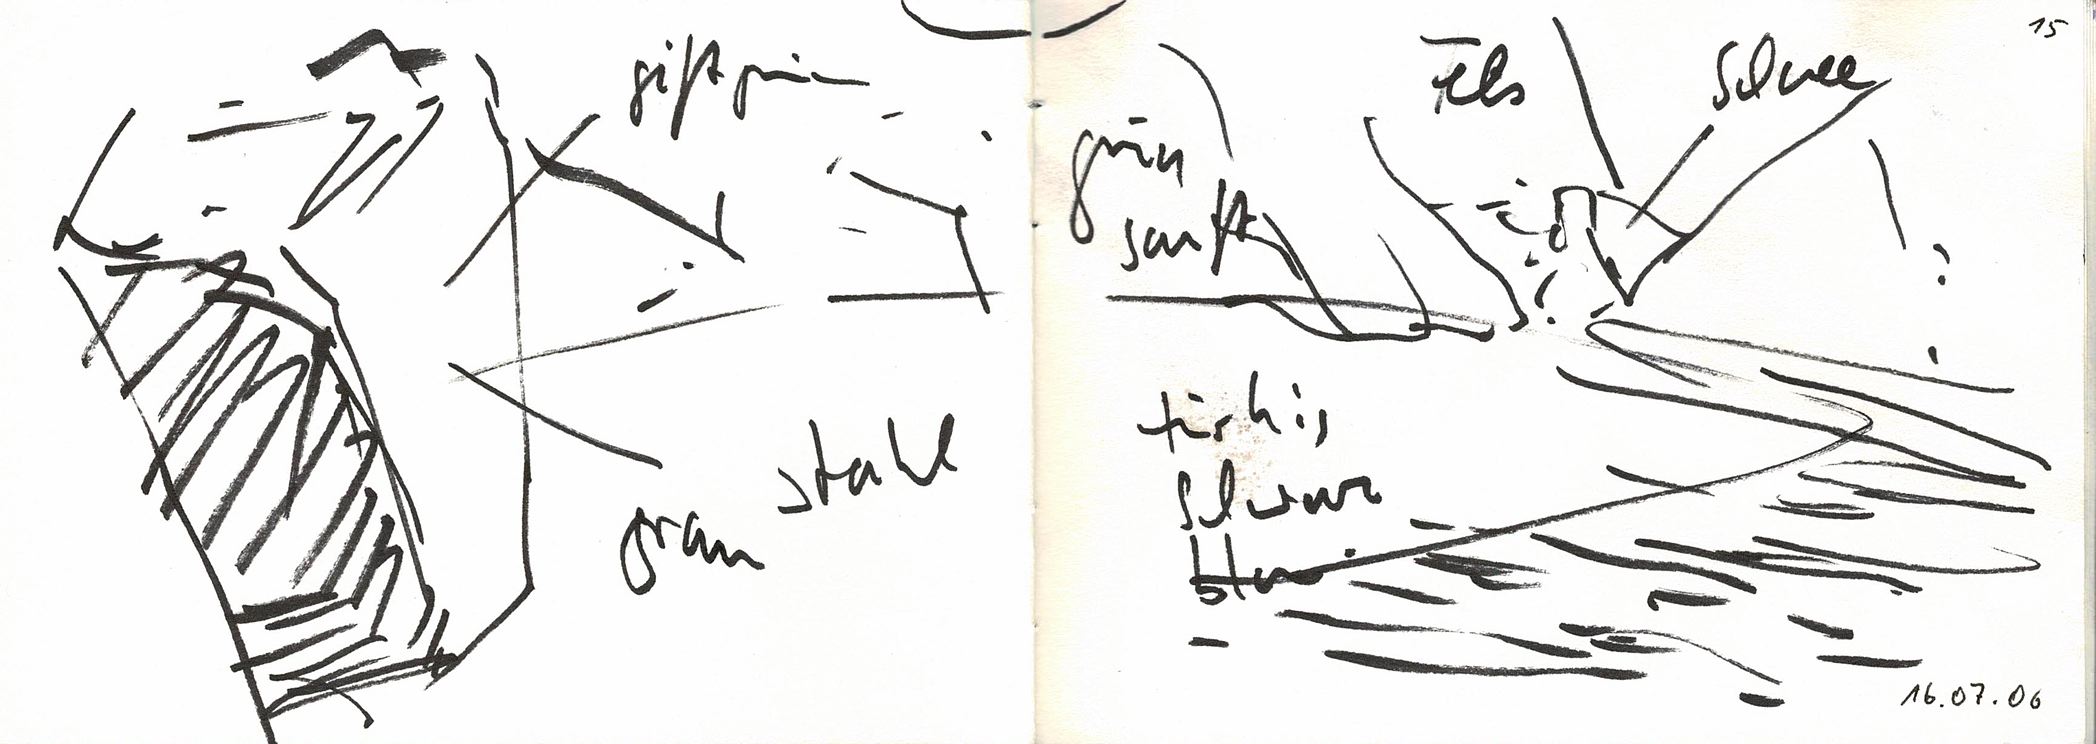 giftgrün
stahl
grau
15
Fels
Schnee
grün
sanft
türkis
schwarz
blau
16.07.06